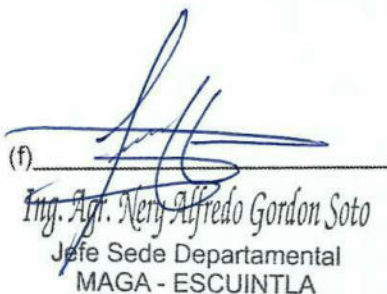 (f)
Ing. Agr. Nery Alfredo Gordon Soto
Jefe Sede Departamental
MAGA - ESCUINTLA